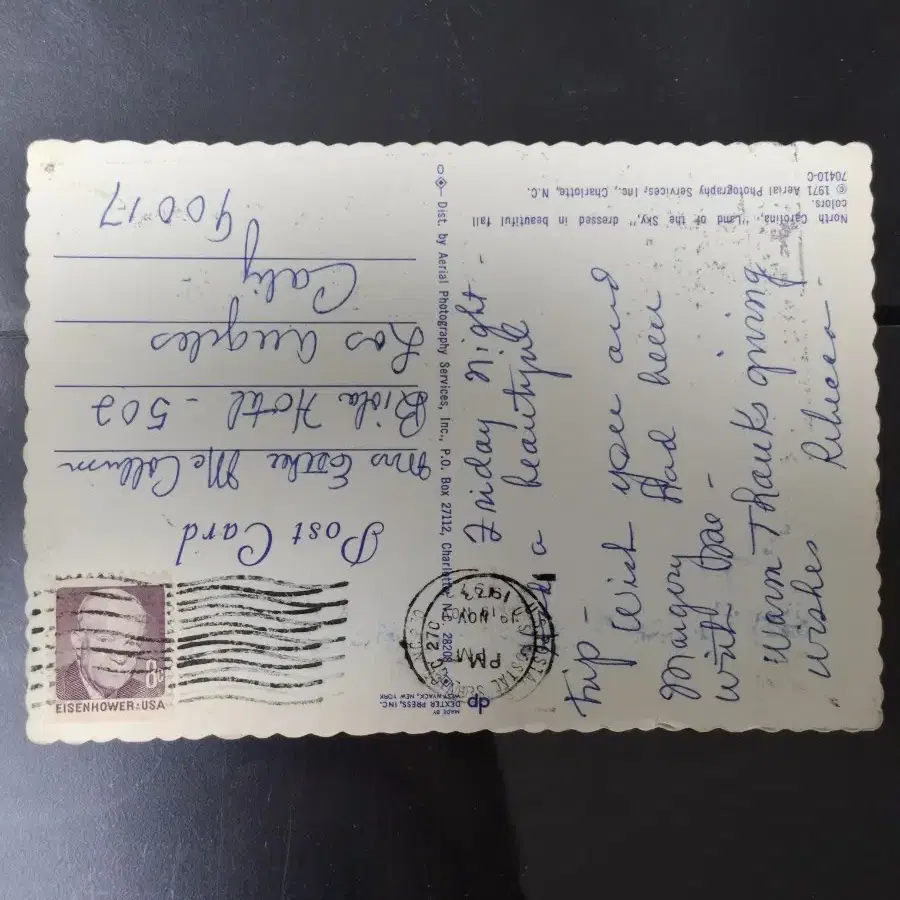 North Carolina, "Land of the Sky," dressed in beautiful fall
colors.
© 1971 Aerial Photography Services, Inc., Charlotte, N.C.
70410-C
Friday night -
a beautiful
trip -
wish you and
Margory Had been
with Rae -
Warm Thanksgiving
wishes Rebecca -
Dist. by Aerial Photography Services, Inc., P.O. Box 27112, Charlotte, N.C. 28208
dp
MADE BY
DEXTER PRESS, INC.
WEST NYACK, NEW YORK
U.S. POSTAL SERVICE NC 270
PM
19 NOV
EISENHOWER·USA
8c
Post Card
Mrs Esther McCollum
Biola Hotel - 502
Los Angeles
Calif
90017